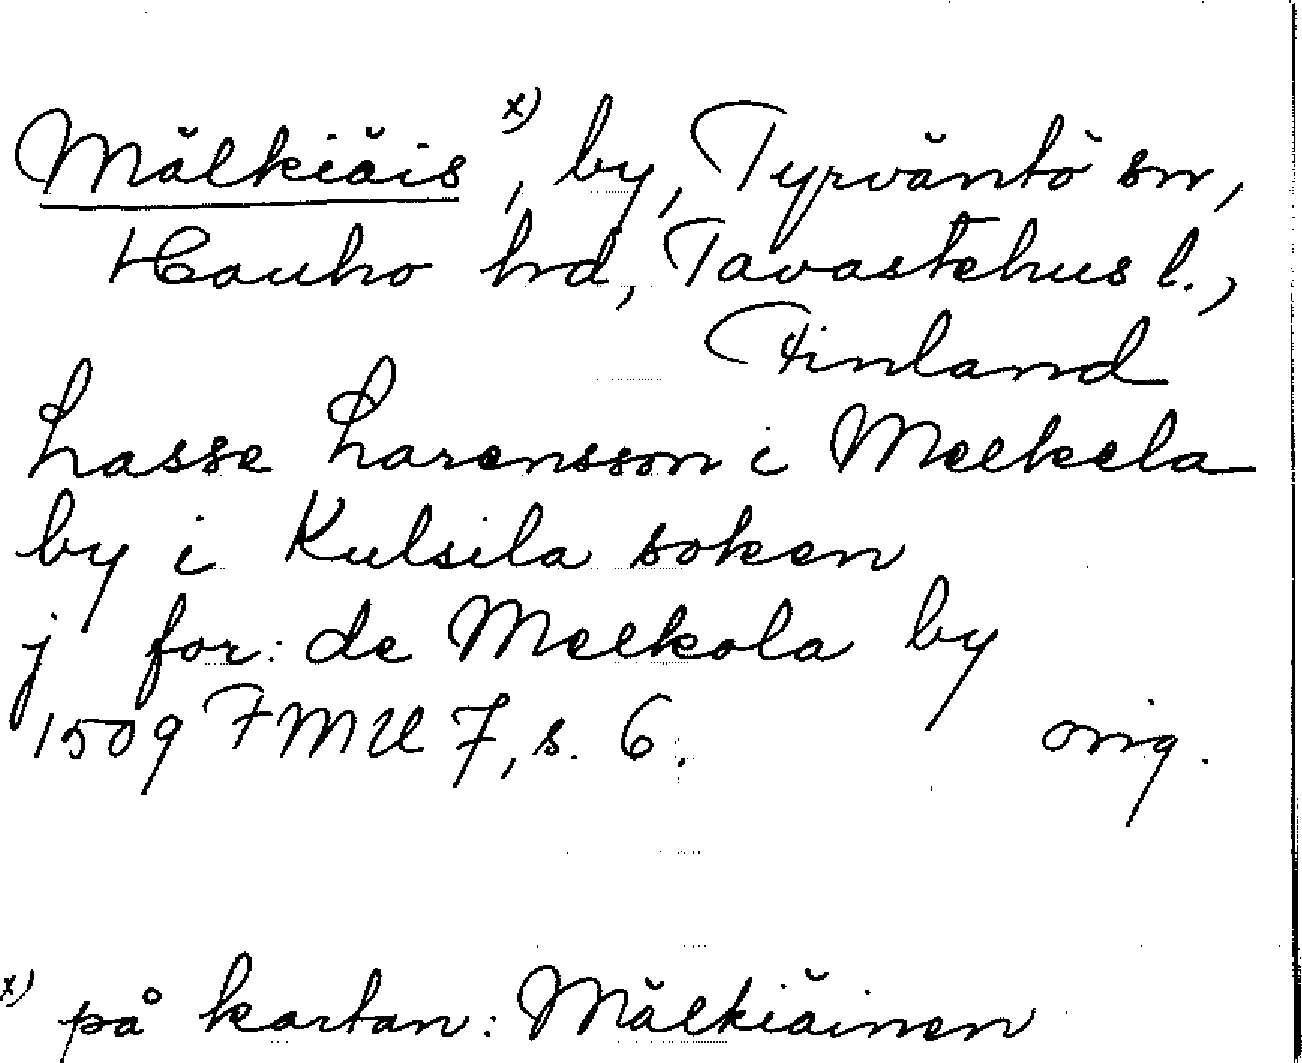 Mälkiäis x), by, Tyrväntö sn,
Hauho hd, Tavastehus l.,
Finland
Lasse Larensson i Melkela
by i Kulsila soken
j for: de Melkola by
1509 FMU 7, s. 6. orig.
x) på kartan: Mälkiäinen